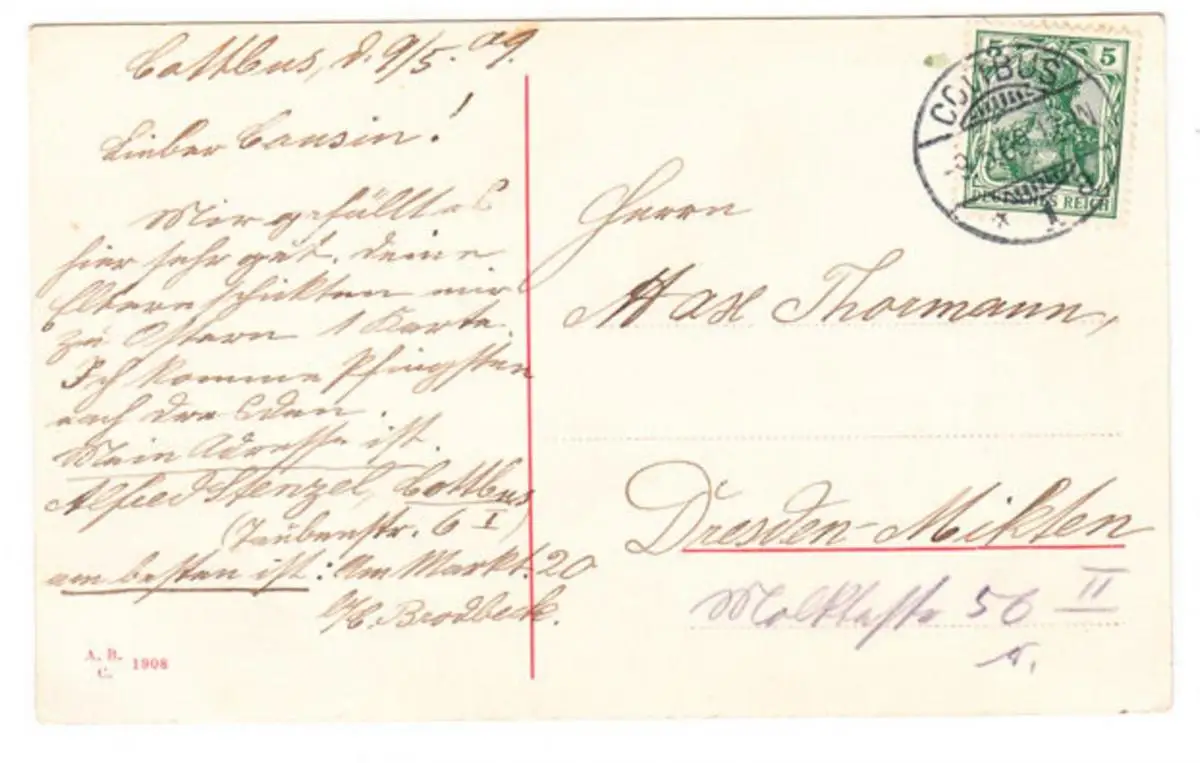 Cottbus, d. 9/5. 09.
Lieber Cousin!
Mir gefällt es
hier sehr gut. Deine
Eltern schickten mir
zu Ostern 1 Karte.
Ich komme Pfingsten
nach Dresden.
Mein Adresse ist.
Alfred Stenzel, Cottbus
(Taubenstr. 6 I)
am besten ist: Am Markt. 20
b/C. Brodbeck.
A. B.
C. 1908
5 5
COTTBUS
DEUTSCHES REICH
* 1
Herrn
Max Thormann,
Dresden-Mikten
56 II